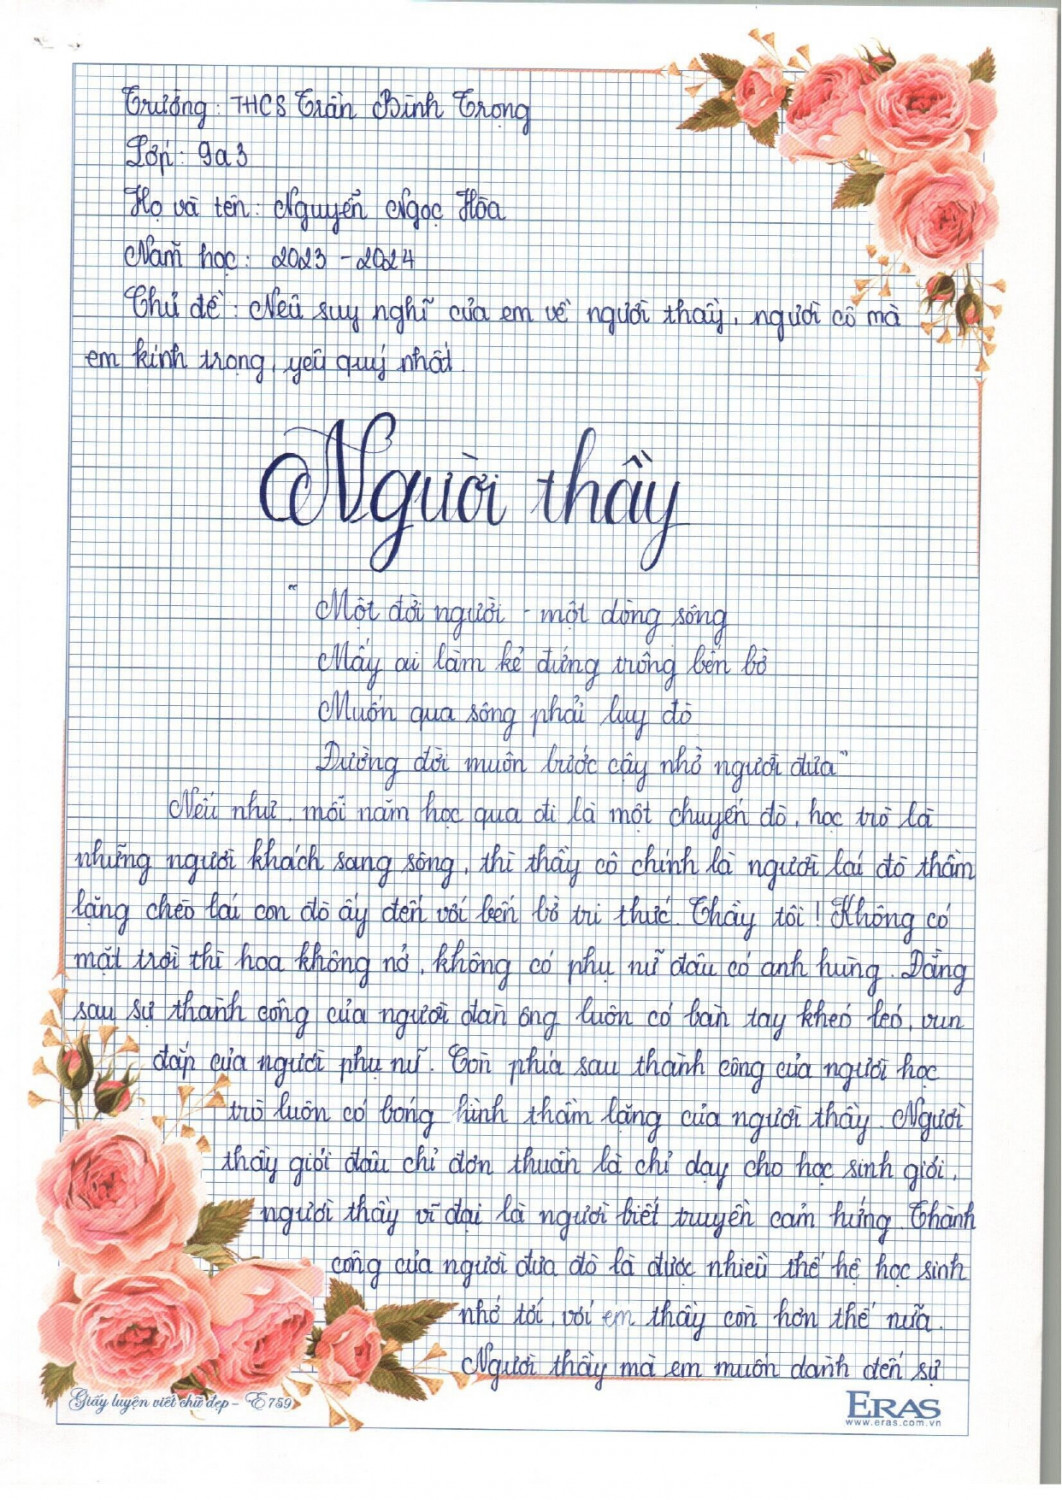 Trường: THCS Trần Bình Trọng
Lớp: 9a3
Họ và tên: Nguyễn Ngọc Hòa
Năm học: 2023 - 2024
Chủ đề: Nêu suy nghĩ của em về người thầy, người cô mà
em kính trọng, yêu quý nhất.
Người thầy
" Một đời người - một dòng sông
Mấy ai làm kẻ đứng trông bến bờ
Muốn qua sông phải lụy đò
Đường đời muôn bước cậy nhờ người đưa"
Nếu như, mỗi năm học qua đi là một chuyến đò, học trò là
những người khách sang sông, thì thầy cô chính là người lái đò thầm
lặng chèo lái con đò ấy đến với bến bờ tri thức. Thầy tôi! Không có
mặt trời thì hoa không nở, không có phụ nữ đâu có anh hùng. Đằng
sau sự thành công của người đàn ông luôn có bàn tay khéo léo, vun
đắp của người phụ nữ. Còn phía sau thành công của người học
trò luôn có bóng hình thầm lặng của người thầy. Người
thầy giỏi đâu chỉ đơn thuần là chỉ dạy cho học sinh giỏi,
người thầy vĩ đại là người biết truyền cảm hứng. Thành
công của người đưa đò là được nhiều thế hệ học sinh
nhớ tới, với em thầy còn hơn thế nữa.
Người thầy mà em muốn dành đến sự
Giấy luyện viết chữ đẹp - E759
ERAS
www.eras.com.vn